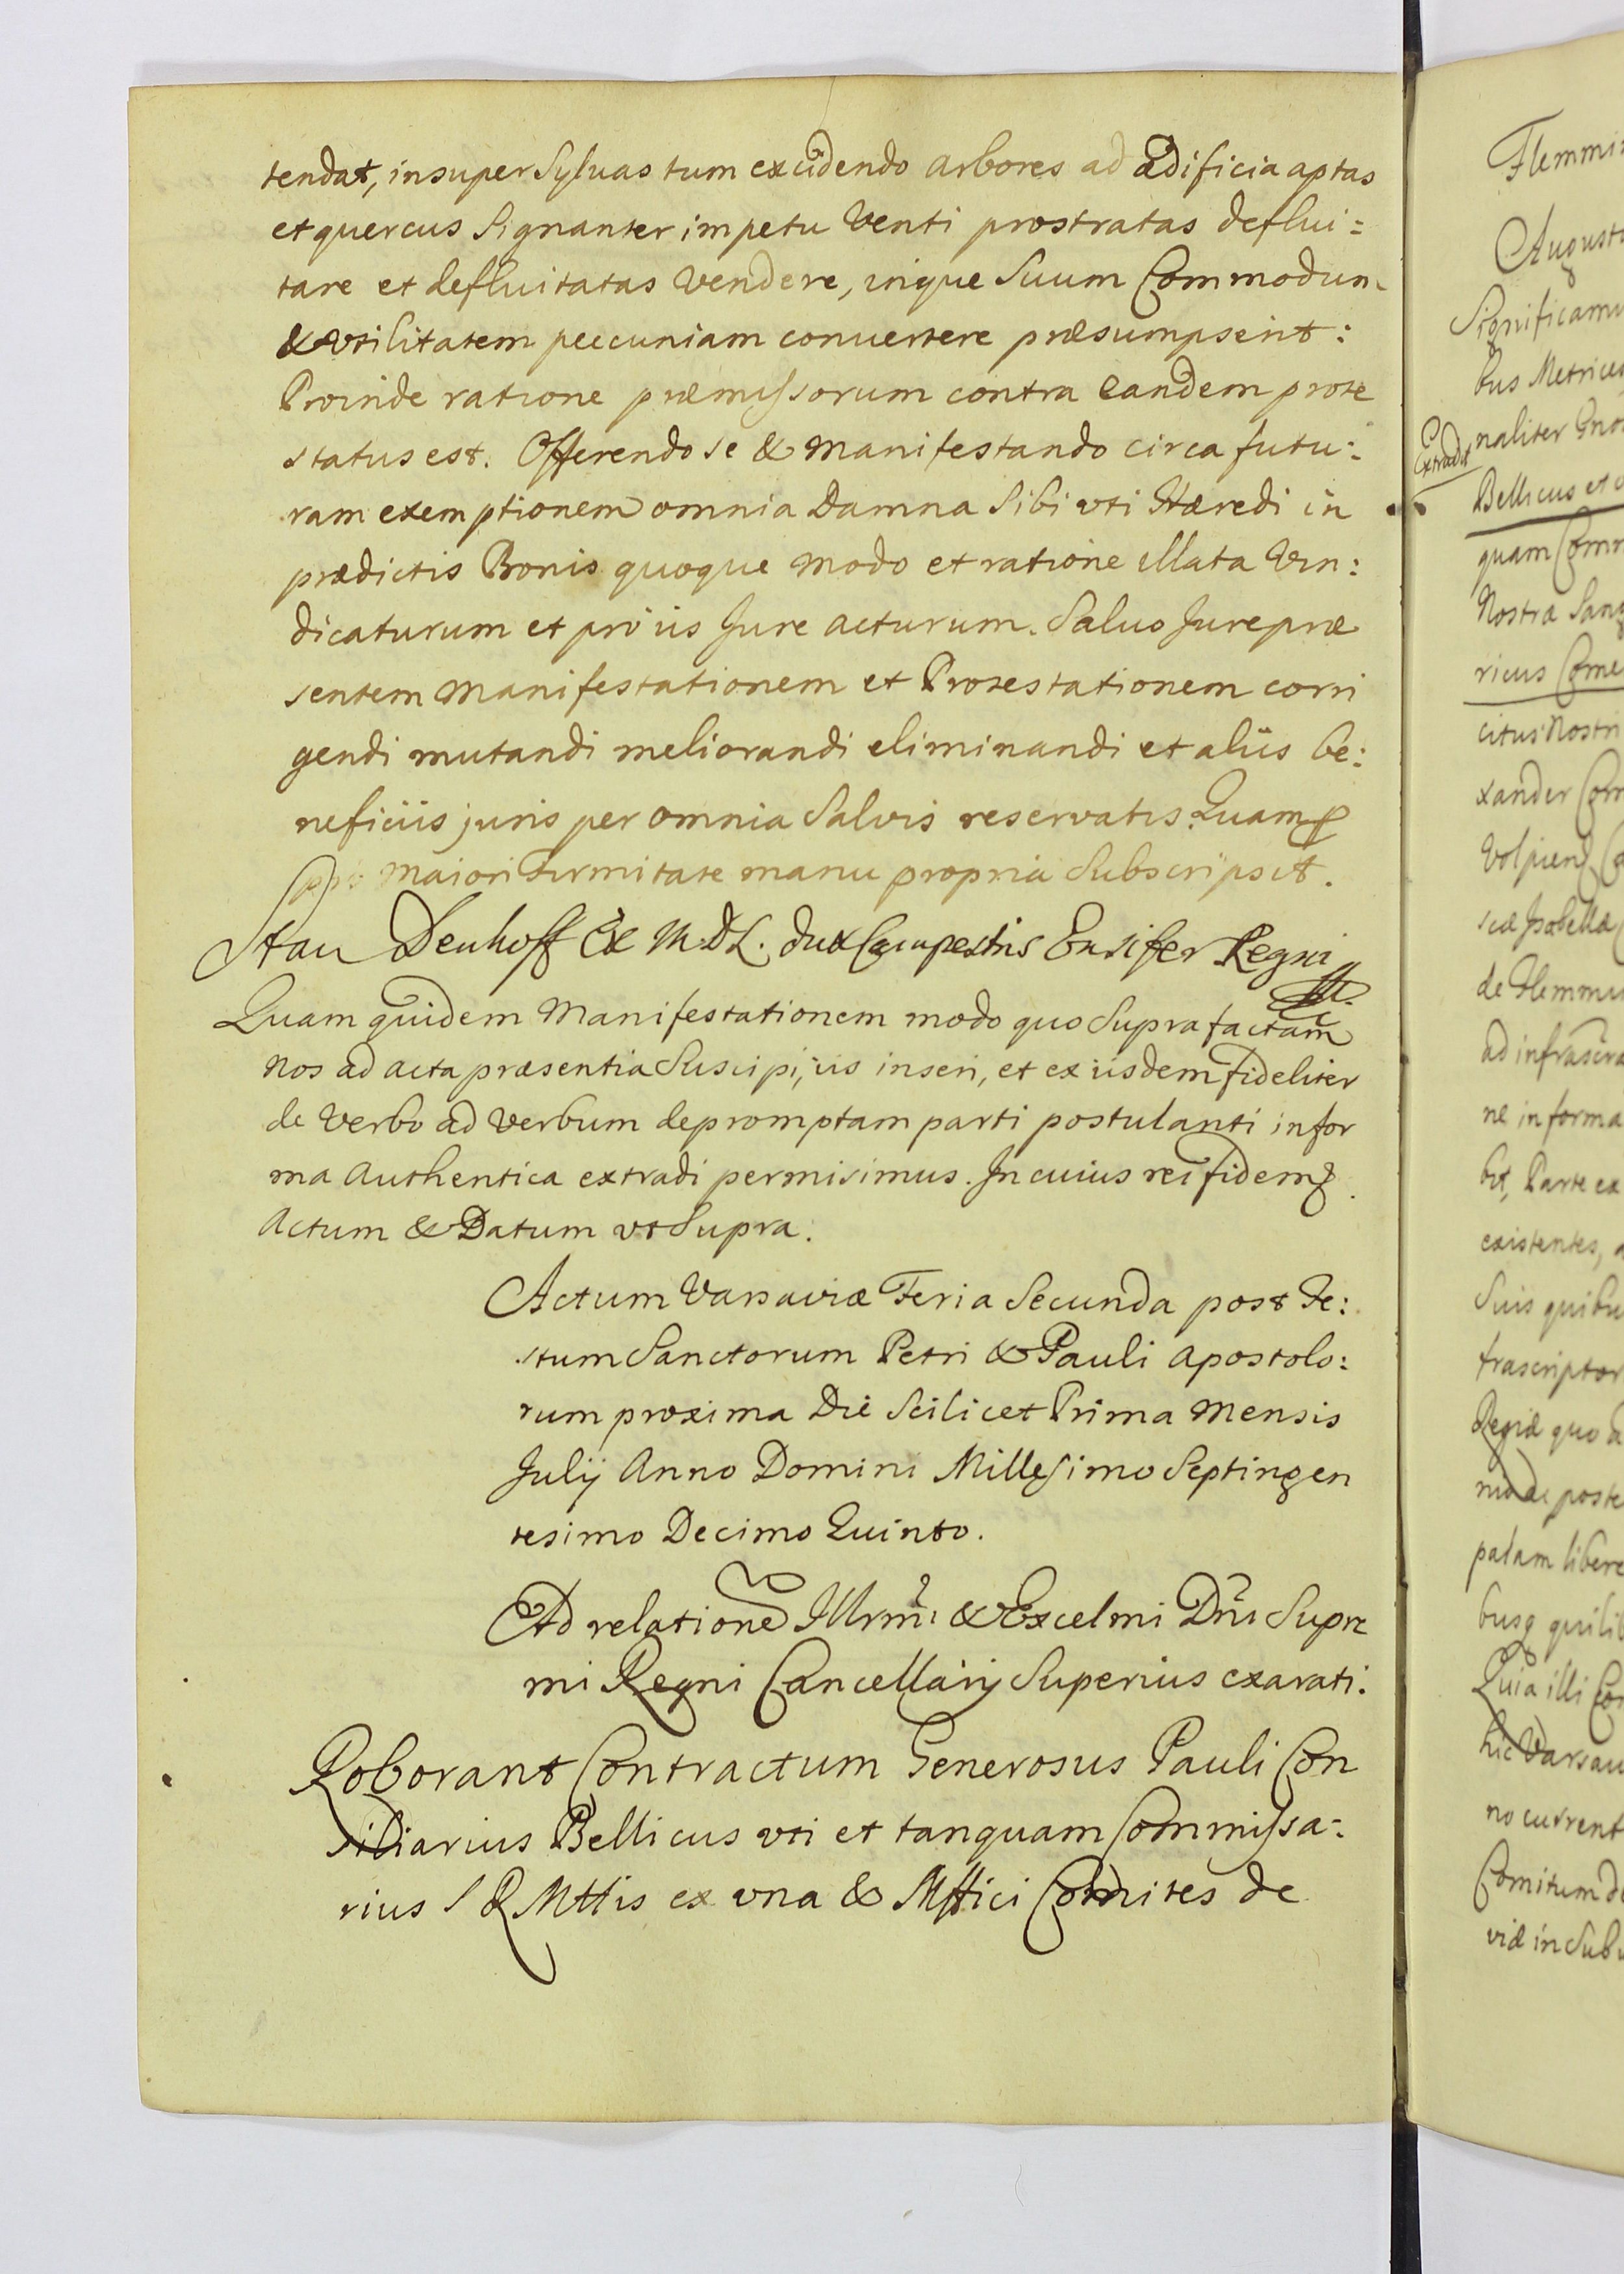 tendat, insuper Sylvas tum excidendo arbores ad ædificia aptas
et quercus Signanter impetu Venti prostratas deflui=
tare et defluitatas Vendere, inque Suum Commodum
& vtilitatem peecuniam conuertere præsumpserit:
Proinde ratione præmissorum contra eandem prote
status est. Offerendo se & manifestando circa futu:
ram exemptionem omnia Damna Sibi vti Hæredi in
prædictis Bonis quoque modo et ratione illata Vin:
dicaturum et pro iis Jure acturum. Saluo Jure præ
sentem manifestationem et Protestationem corri
gendi mutandi meliorandi eliminandi et aliis be:
neficiis juris per omnia Salvis reservatis. Quam
pro maiori Firmitate manu propria Subscripsit.
Stan Denhoff Ex M.D.L. dux Campestris Ensifer Regni
Quam quidem Manifestationem modo quo Supra factam
Nos ad acta præsentia Suscipi, iis inseri, et ex iisdem fideliter
de Verbo ad Verbum depromptam parti postulanti in for
ma Authentica extradi permisimus. In cuius rei fidem
Actum & Datum vt Supra.
Actum Varsaviæ Feria Secunda post Fe:
stum Sanctorum Petri & Pauli Apostolo:
rum proxima Die Scilicet Prima Mensis
Julij Anno Domini Millesimo Septingen
tesimo Decimo Quinto.
Ad relatione Illrmi & Excelmi Dni Supre
mi Regni Cancellarij Superius exarati.
Roborant Contractum Generosus Pauli Con
siliarius Bellicus vti et tanquam Commissa:
rius S R Mttis ex vna & Mffici Comites de
Flemmin
August
Significamu
bus Metrices
Extradit
naliter
Bellicus et
quam Comm
Nostræ Sang
ricus Come
citus Nostri
xander Com
sæ Isabellæ
de Flemmin
ad infrascra
ne in forma
bit, Parte ex
existentes,
Suis quibu
frascriptor
Regiæ quo
poste
palam libere
busq quilib
Quia illi Con
hic Varsau
no current
Comitum de
viæ in Subu